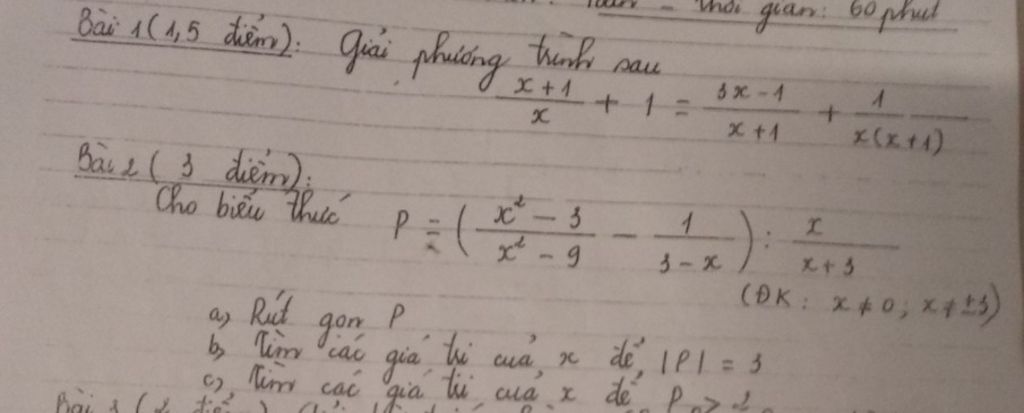 Toán - thời gian: 60 phút
Bài 1 (1,5 điểm): Giải phương trình sau
(x + 1)/x + 1 = (3x - 1)/(x + 1) + 1/(x(x + 1))
Bài 2 ( 3 điểm):
Cho biểu thức P = ( (x² - 3)/(x² - 9) - 1/(3 - x) ) : x/(x + 3)
(ĐK : x ≠ 0 ; x ≠ ±3)
a) Rút gọn P
b) Tìm các giá trị của x để |P| = 3
c) Tìm các giá trị của x để P >
Bài 3 (